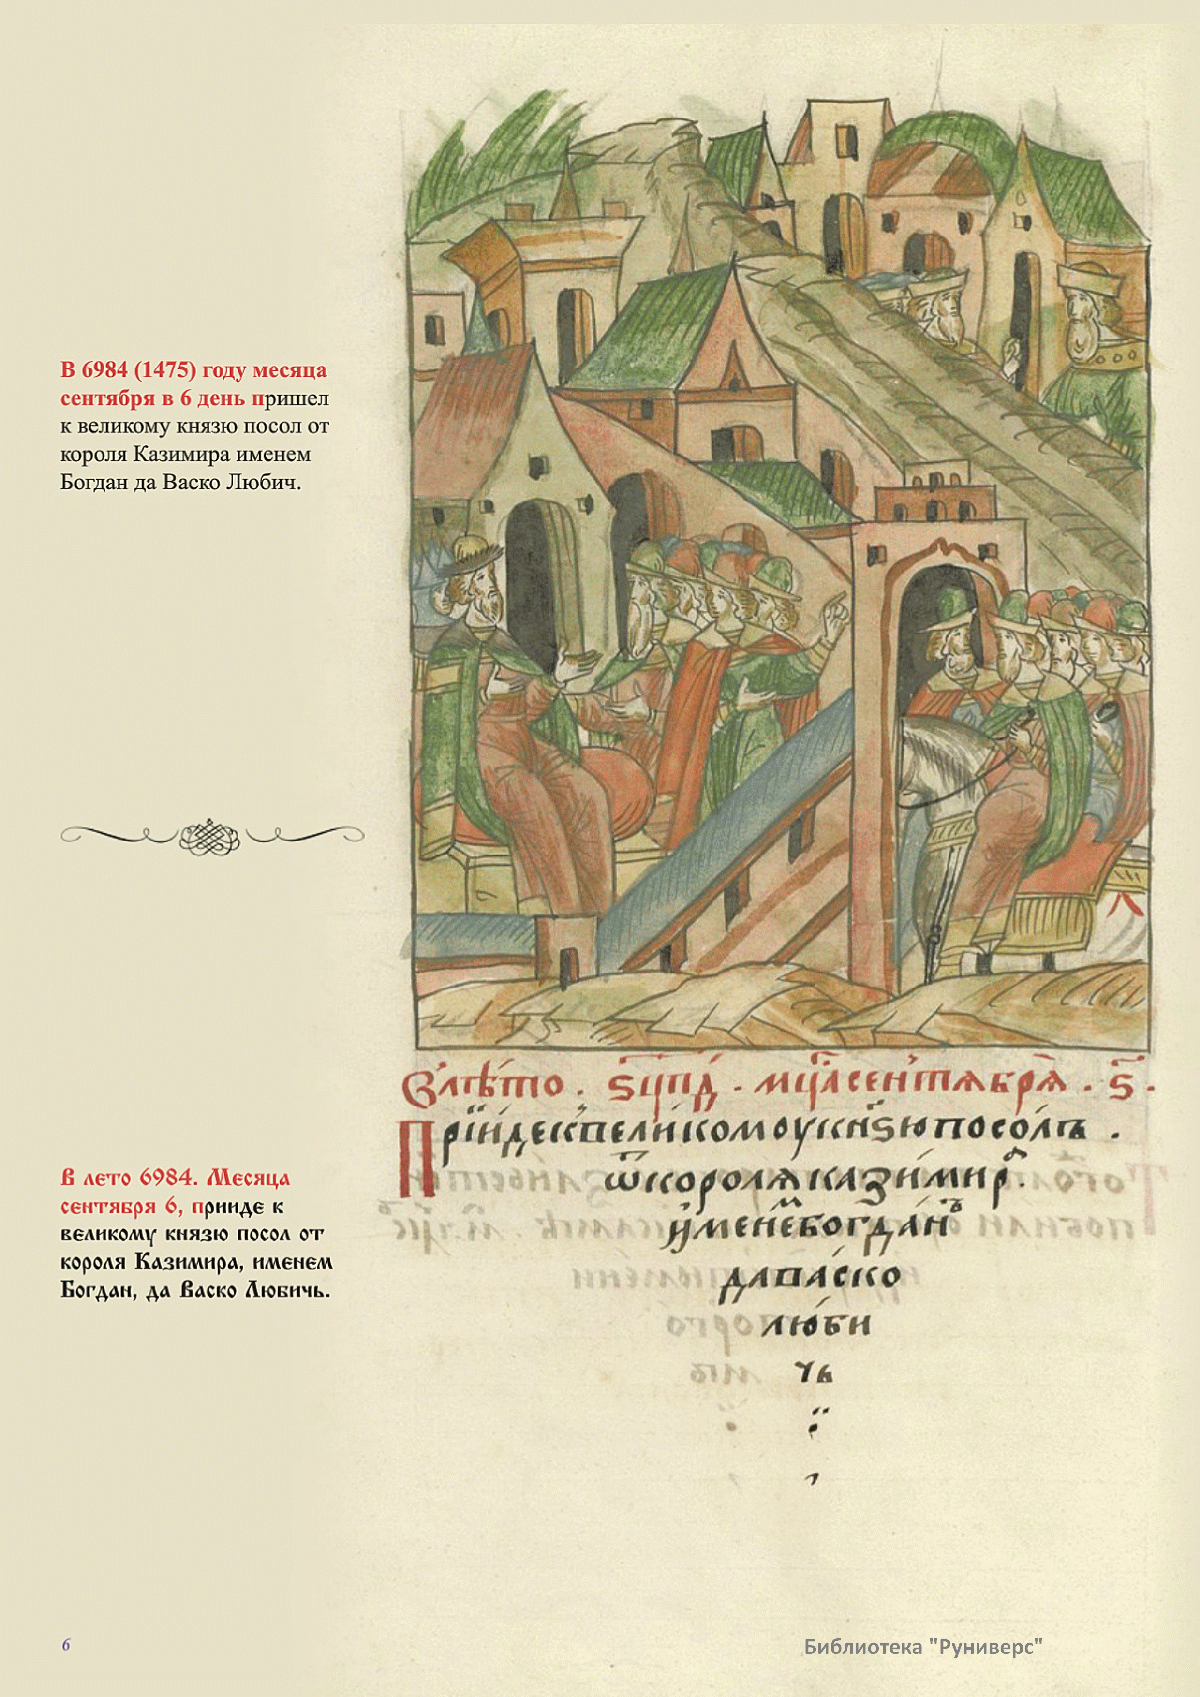 В 6984 (1475) году месяца
сентября в 6 день пришел
к великому князю посол от
короля Казимира именем
Богдан да Васко Любич.
Влѣто . ѕцпд . мцасентѧбрѧ . ѕ .
Прїидеквеликомоукнѕюпосолъ .
ѿкоролѧказимир
именебогданъ
даваско
люби
чь
В лето 6984. Месяца
сентября 6, прииде к
великому князю посол от
короля Казимира, именем
Богдан, да Васко Любичь.
6
Библиотека "Руниверс"